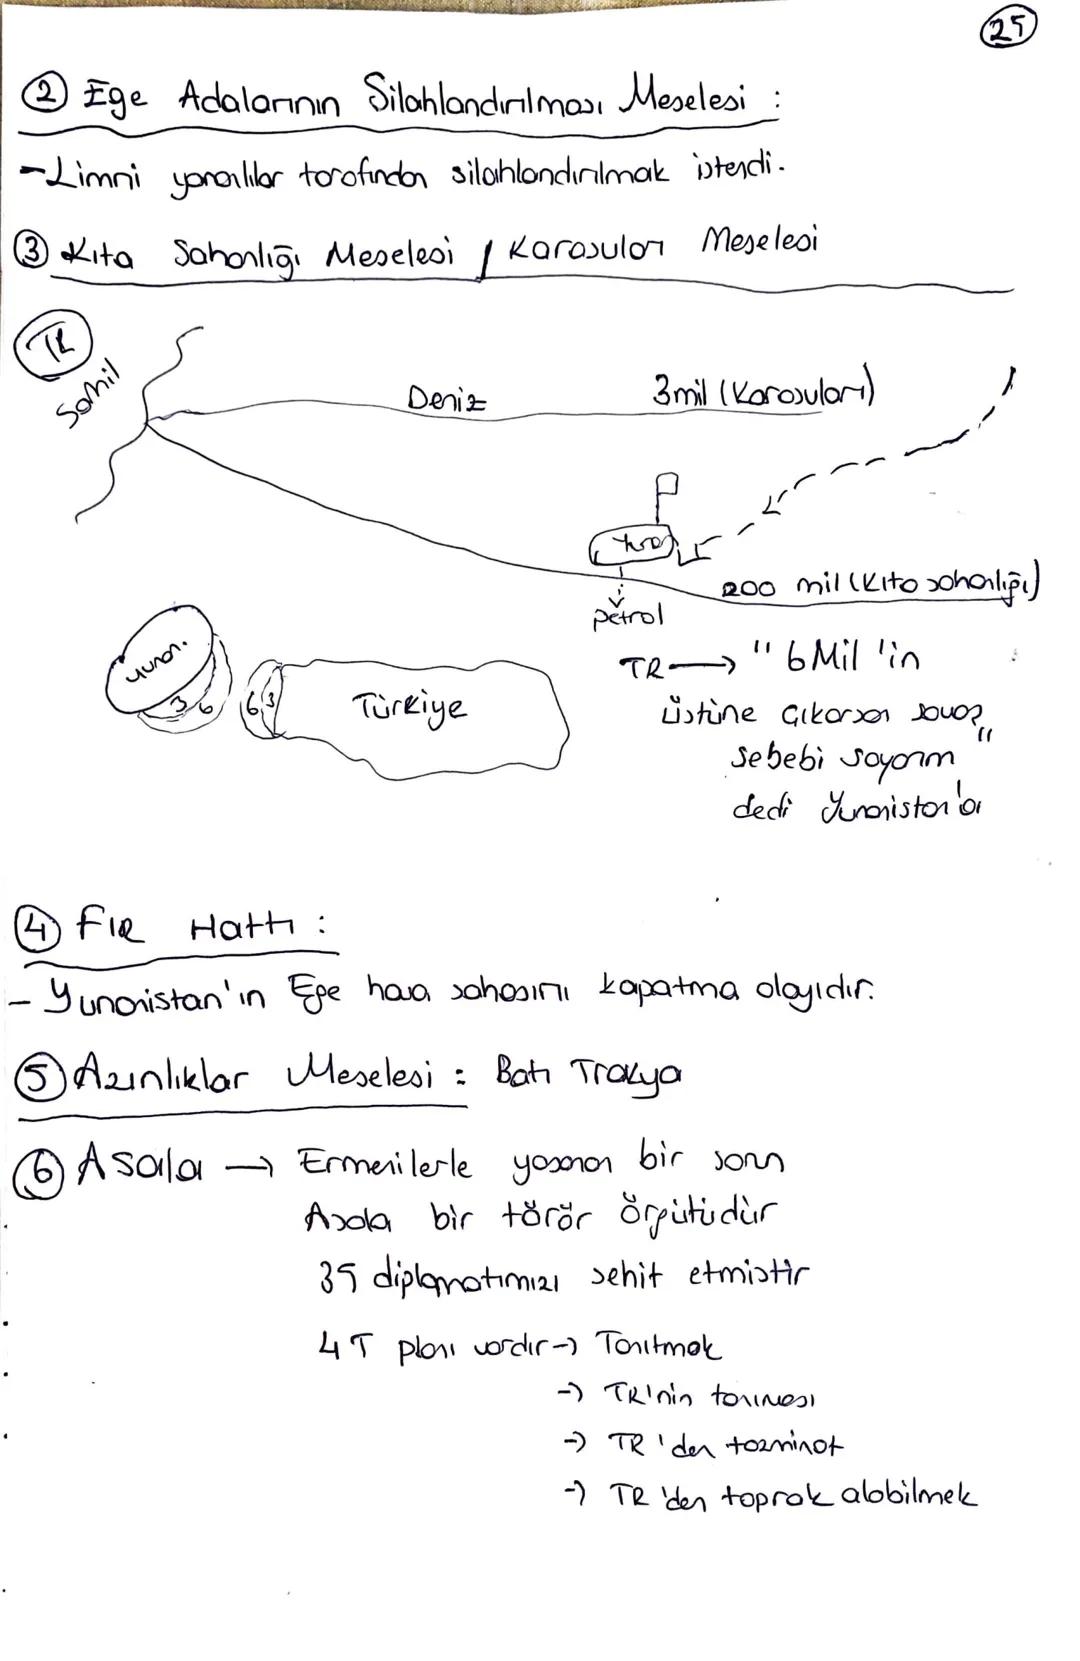 25
② Ege Adalarının Silahlandırılması Meselesi :
- Limni yunanlılar tarafından silahlandırılmak istendi.
③ Kıta Sahanlığı Meselesi / Karasuları Meselesi
TR
Sahil
Deniz
3 mil (Karasuları)
petrol
200 mil (Kıta sahanlığı)
Yunan.
3 6
6 3
Türkiye
TR → "6 Mil 'in
üstüne çıkarsan savaş
sebebi sayarım"
dedi Yunanistan'a
④ FIR Hattı :
- Yunanistan'ın Ege hava sahasını kapatma olayıdır.
⑤ Azınlıklar Meselesi : Batı Trakya
⑥ Asala → Ermenilerle yaşanan bir sorun
Asala bir törör örgütüdür
35 diplomatımızı şehit etmiştir
4 T planı vardır → Tanıtmak
→ TR'nin tanıması
→ TR 'den tazminat
→ TR 'den toprak alabilmek